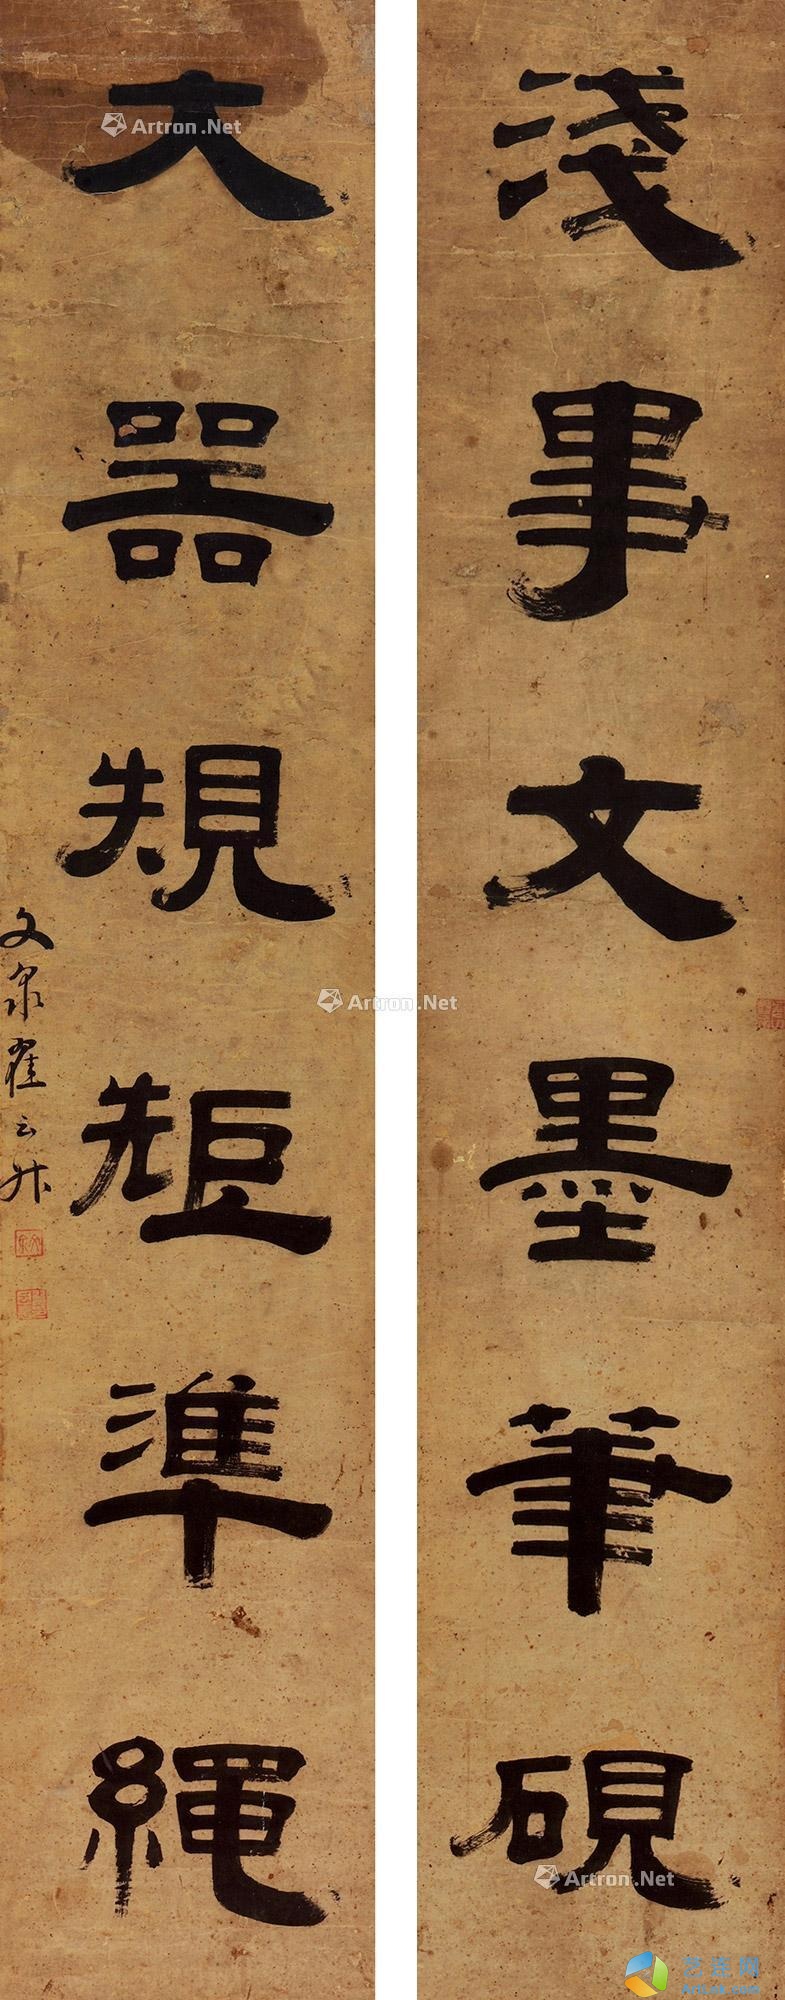 淺事文墨筆硯
大器規矩準繩
文泉翟云升
Artron.Net
Artron.Net
Artron.Net
艺源网